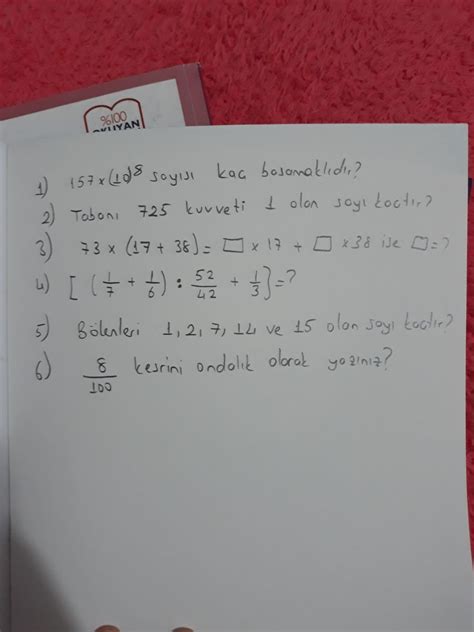 %100
OKUYAN
1) 157 x (10)⁸ sayısı kaç basamaklıdır?
2) Tabanı 725 kuvveti 1 olan sayı kaçtır?
3) 73 x (17 + 38) = □ x 17 + □ x 38 ise □ = ?
4) [ ( 1/7 + 1/6 ) : 52/42 + 1/3 ] = ?
5) Bölenleri 1, 2, 7, 14 ve 15 olan sayı kaçtır?
6) 8/100 kesrini ondalık olarak yazınız?